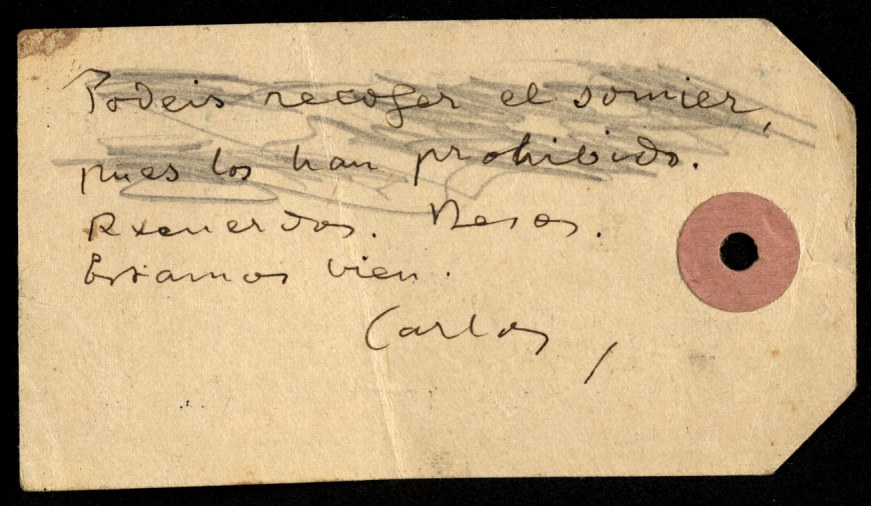 Podeis recoger el somier,
pues los han prohibido.
Recuerdos. Besos.
Estamos bien.
Carlos,